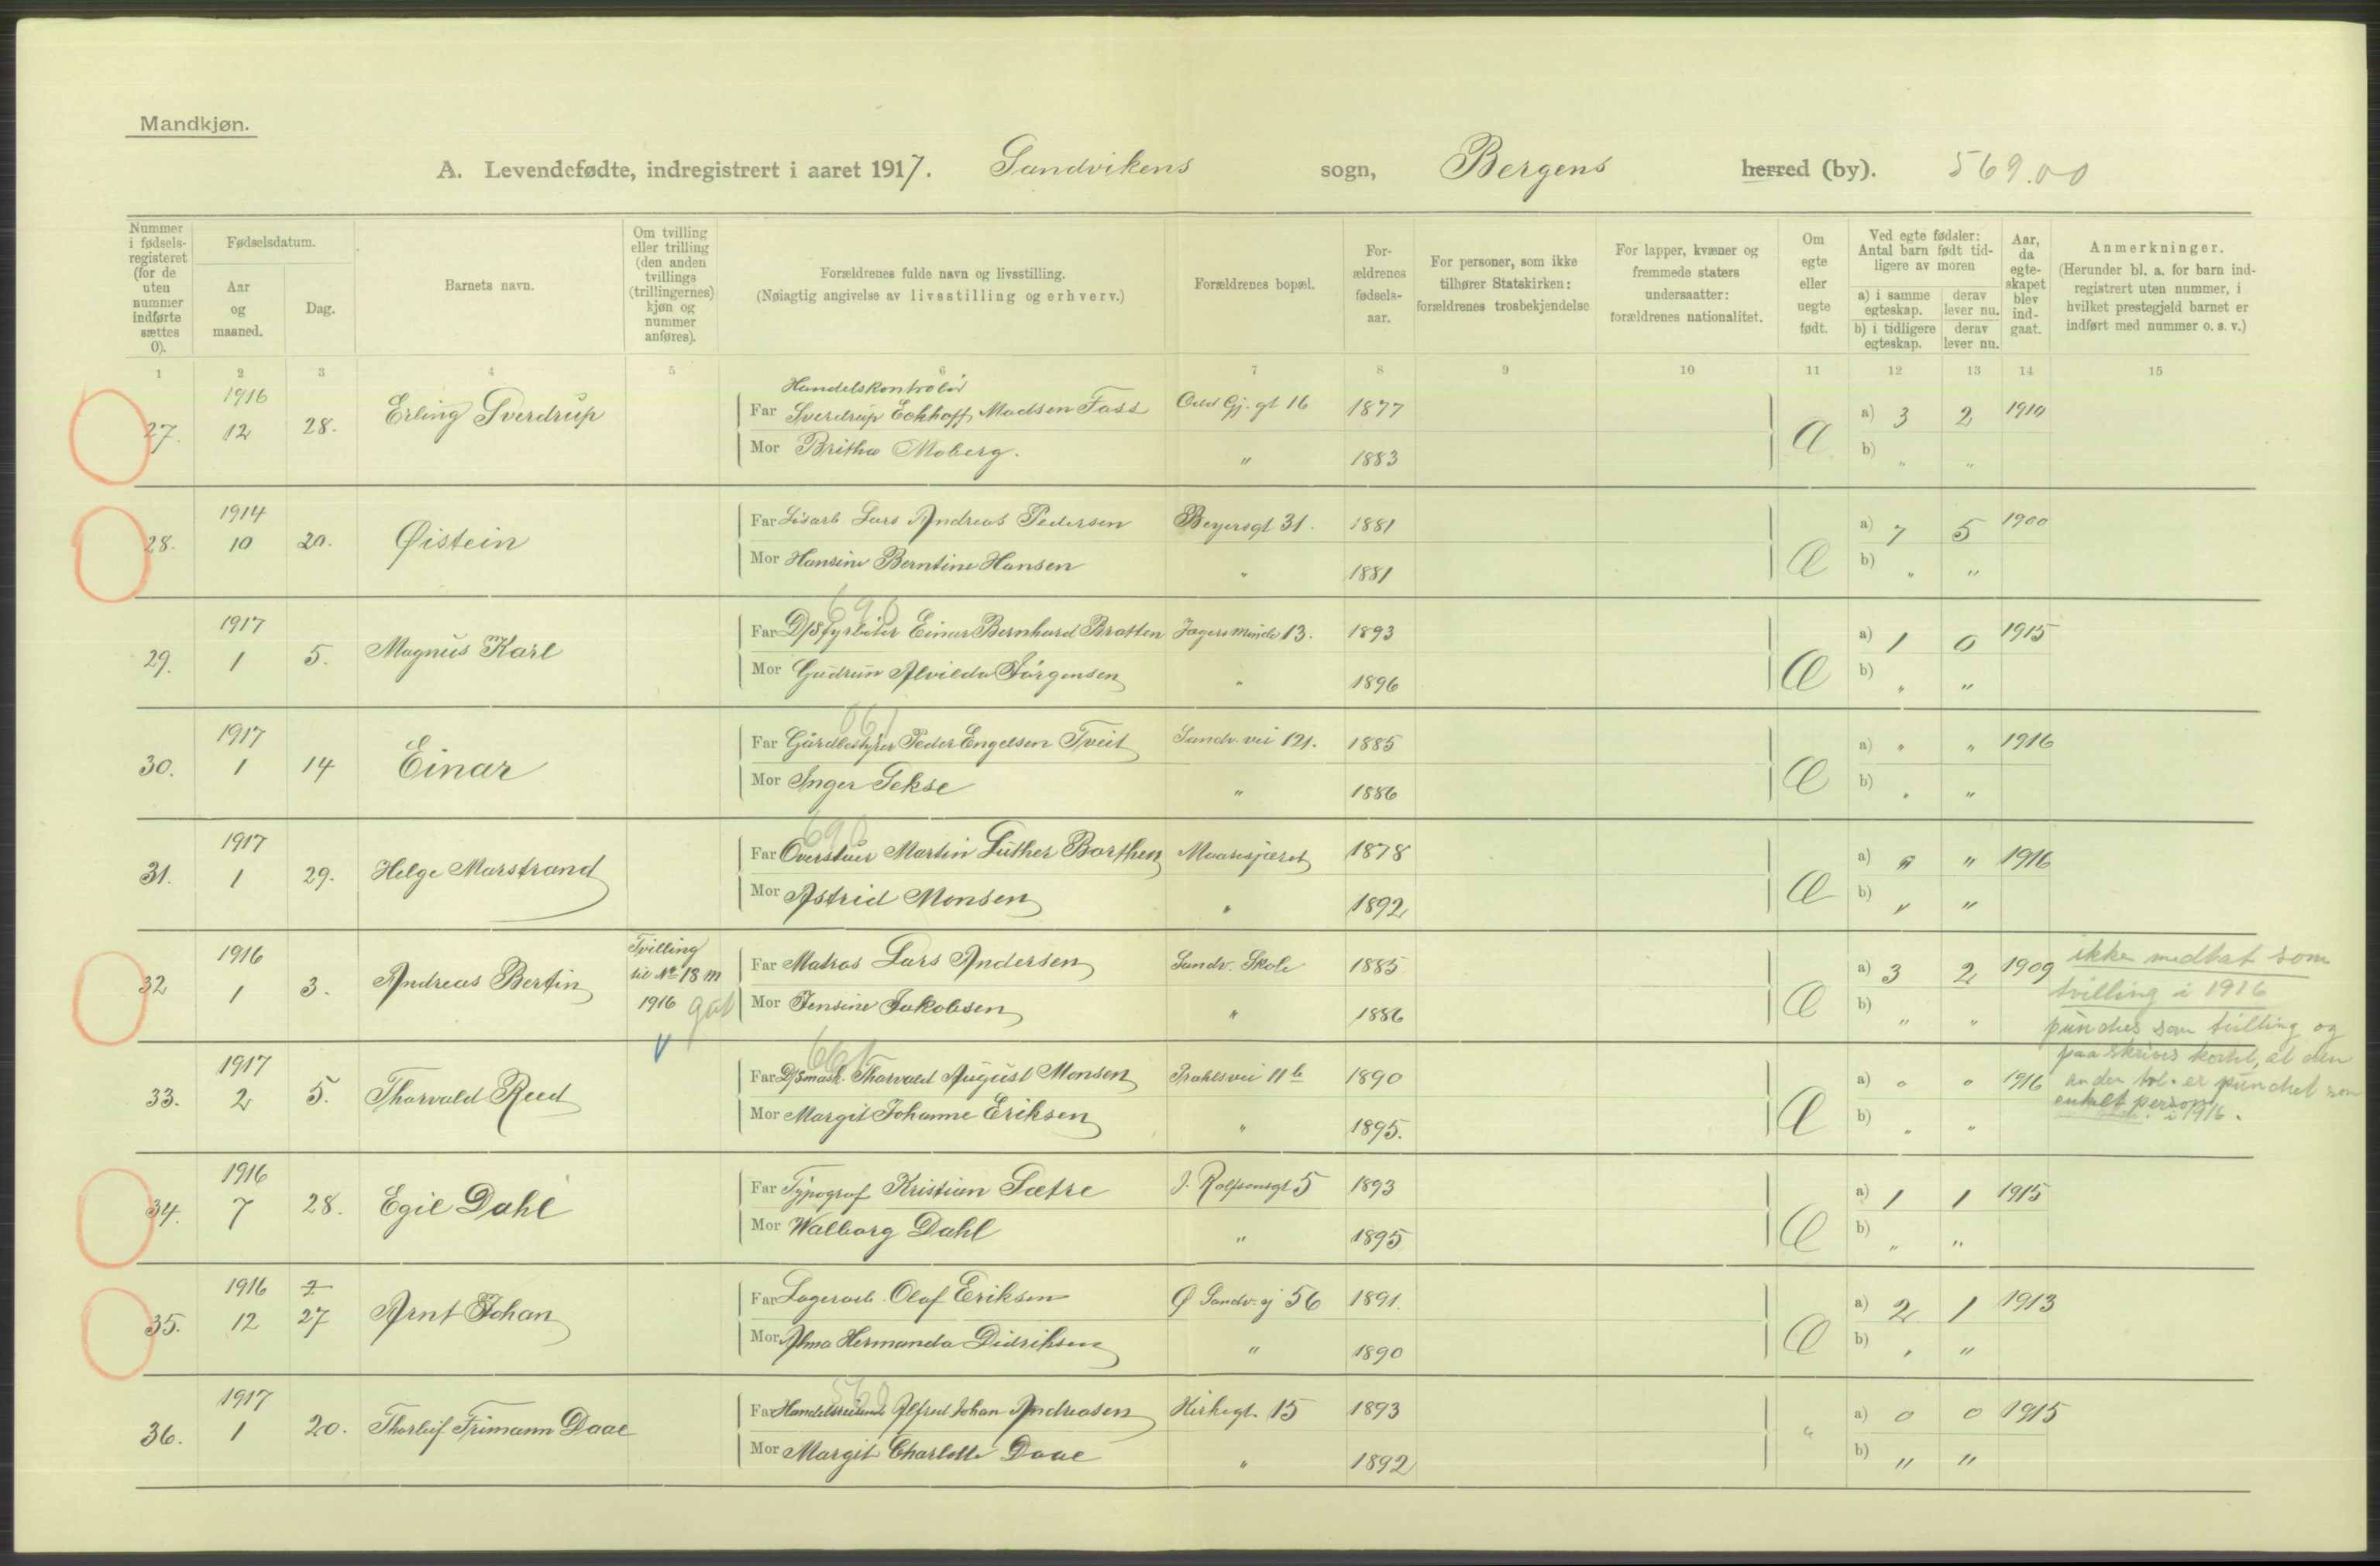 Mandkjøn.
A. Levendefødte, indregistrert i aaret 1917. Sandvikens sogn, Bergens herred (by). 569.00
Nummer i fødselsregisteret (for de uten nummer indførte sættes 0).
Fødselsdatum.
Aar og maaned.
Dag.
Barnets navn.
Om tvilling eller trilling (den anden tvillings (trillingernes) kjøn og nummer anføres).
Forældrenes fulde navn og livsstilling.
(Nøiagtig angivelse av livsstilling og erhverv.)
Forældrenes bopæl.
Forældrenes fødselsaar.
For personer, som ikke tilhører Statskirken: forældrenes trosbekjendelse
For lapper, kvæner og fremmede staters undersaatter: forældrenes nationalitet.
Om egte eller uegte født.
Ved egte fødsler: Antal barn født tidligere av moren
a) i samme egteskap. derav lever nu.
b) i tidligere egteskap. derav lever nu.
Aar, da egteskapet blev indgaat.
Anmerkninger.
(Herunder bl. a. for barn indregistrert uten nummer, i hvilket prestegjeld barnet er indført med nummer o. s. v.)
1 2 3 4 5 6 7 8 9 10 11 12 13 14 15
1916 Handelskontrolør
27. 12 28. Erling Sverdrup Far Sverdrup Eckhoff Madsen Fass Odd Gj. gt 16 1877 a) 3 2 1910
Mor Britha Moberg. " 1883 b) " "
1914
28. 10 20. Øistein Far Løsarb. Lars Andreas Pedersen Beyersgt 31. 1881 a) 7 5 1900
Mor Hansine Berntine Hansen " 1881 b) " "
1917 690
29. 1 5. Magnus Karl Far D/S fyrbøter Einar Bernhard Bratten Jægersminde 13. 1893 a) 1 0 1915
Mor Gudrun Alvilda Jørgensen " 1896 b) " "
1917 061
30. 1 14 Einar Far Gårdbestyrer Peder Engelsen Tveit Sandv. vei 121. 1885 a) " " 1916
Mor Inger Sekse " 1886 b) " "
1917 690
31. 1 29. Helge Marstrand Far Overstuer Martin Luther Barthen 1878 a) " " 1916
Mor Astrid Monsen " 1892 b) " "
1916
32 1 3. Andreas Bertin Tvilling til No 18 m 1916 Far Matros Lars Andersen Sandv. Skole 1885 a) 3 2 1909
Mor Jensine Jakobsen " 1886 b) " "
ikke medtat som
tvilling i 1916
punches som tvilling og
paaskrives kortet, at den
anden tvl. er punchet som
enkelt person i 1916.
1917 661
33. 2 5. Thorvald Reed Far D/S mask. Thorvald August Monsen Prahlsvei 11 b 1890 a) 0 0 1916
Mor Margit Johanne Eriksen " 1895. b) " "
1916
34. 7 28. Egil Dahl Far Typograf Kristian Sætre J. Rolfsensgt 5 1893 a) 1 1 1915
Mor Walborg Dahl " 1895 b) " "
1916 7
35. 12 27 Arnt Johan Far Lagerarb. Olaf Eriksen Ø Sandv. gt 56 1891. a) 2 1 1913
Mor Alma Hermanda Didriksen " 1890 b) " "
1917 560
36. 1 20. Thorleif Frimann Daae Far Handelsreisende Alfred Johan Andreasen Kirkegt. 15 1893 " a) 0 0 1915
Mor Margit Charlotte Daae " 1892 b) " "